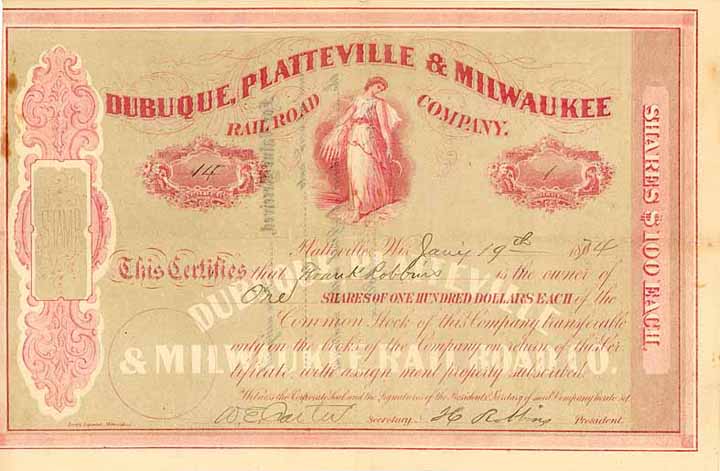 DUBUQUE, PLATTEVILLE & MILWAUKEE
RAIL ROAD COMPANY.
14
1
Platteville, Wis. Jany 19th 1874
This Certifies that Hoank Robbins is the owner of
One SHARES OF ONE HUNDRED DOLLARS EACH of the
Common Stock of this Company transferable
only on the books of the Company on return of this Cer
tificate, with assignment properly subscribed.
Witness the Corporate Seal and the Signatures of the President & Secretary of said Company hereto set.
W. E. Carter Secretary. H. Robbins President.
DUBUQUE, PLATTEVILLE
& MILWAUKEE RAIL ROAD CO.
SHARES $100 EACH.